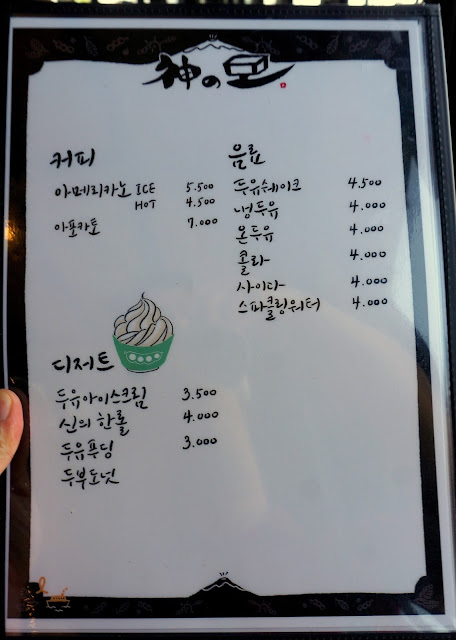 神の모
커피
아메리카노 ICE 5.500
HOT 4.500
아포카토 7.000
음료
두유쉐이크 4.500
냉두유 4.000
온두유 4.000
콜라 4.000
사이다 4.000
스파클링워터 4.000
디저트
두유아이스크림 3.500
신의 한롤 4.000
두유푸딩 3.000
두부도넛